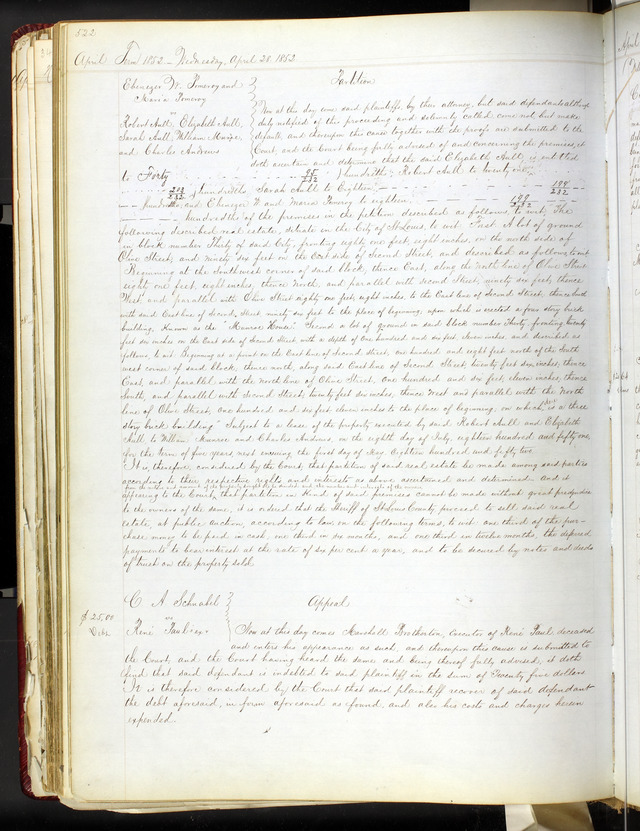 522
April Term 1852 - Wednesday, April 28 1852
Ebenezer W. Pomeroy and
Maria Pomeroy
vs
Robert Aull, Elizabeth Aull,
Sarah Aull, William Monroe
and Charles Andrews
Partition
Now at this day come said plaintiffs by their attorney, but said defendants although
duly notified of this proceeding and solemnly called come not, but make
default, and thereupon this cause together with the proofs are submitted to the
Court, and the Court being fully advised of and concerning the premises, it
doth ascertain and determine that the said Elizabeth Aull is entitled
to Forty hundredths, Robert Aull to twenty
hundredths Sarah Aull to Eighteen
hundredths, and Ebenezer W. and Maria Pomeroy to eighteen
hundredths of the premises in the petition described as follows to wit: The
following described real estate, situate in the City of St Louis to wit: First. A lot of ground
in block number Thirty of said City, fronting eighty one feet, eight inches, on the north side of
Olive Street, and ninety six feet on the East side of Second Street, and described as follows, to wit:
Beginning at the Southwest corner of said block, thence East, along the North line of Olive Street
eighty one feet, eight inches, thence North, and parallel with Second Street, ninety six feet, thence
West and parallel with Olive Street eighty one feet eight inches, to the East line of Second Street, thence South
with said East line of Second Street ninety six feet to the place of beginning, upon which is erected a four story brick
building, Known as the "Munroe House." Second a lot of ground in said block number Thirty, fronting twenty
feet six inches on the East side of Second Street with a depth of One hundred and six feet eleven inches, and described as
follows, to wit: Beginning at a point on the East line of Second street, one hundred and eight feet north of the South
west corner of said block, thence north, along said East line of Second Street twenty feet six inches, thence
East, and parallel with the north line of Olive Street, One hundred and six feet, eleven inches, thence
South, and parallel with Second Street, twenty feet six inches, thence West and parallel with the North
line of Olive Street, one hundred and six feet eleven inches to the place of beginning, on which is a three
story brick building. Subject to a lease of the property executed by said Robert Aull and Elizabeth
Aull to William Munroe and Charles Andrews, on the eighth day of July, eighteen hundred and fifty one,
for the term of five years, next ensuing the first day of May Eighteen hundred and fifty two.
It is, therefore, considered by the Court, that partition of said real estate be made among said parties
according to their respective rights and interests as above ascertained and determined. And it
appearing to the Court, that partition in Kind of said premises cannot be made without great prejudice
to the owners of the same, it is ordered that the Sheriff of St Louis County, proceed to sell said real
estate, at public auction, according to law on the following terms, to wit: one third of the pur-
chase money to be paid in cash, one third in six months, and one third in twelve months, the deferred
payments to bear interest at the rate of six per cent a year, and to be secured by notes and deeds
of trust on the property sold.
$25,00
Debt.
C. A Schnabel
vs
René Paul's exr
Appeal
Now at this day comes Marshall Brotherton, executor of René Paul, deceased
and enters his appearance as such, and thereupon this cause is submitted to
the Court, and the Court having heard the same and being thereof fully advised, it doth
find that said defendant is indebted to said plaintiff in the sum of Twenty five dollars
It is therefore considered by the Court that said plaintiff recover of said defendant
the debt aforesaid, in form aforesaid as found, and also his costs and charges herein
expended.